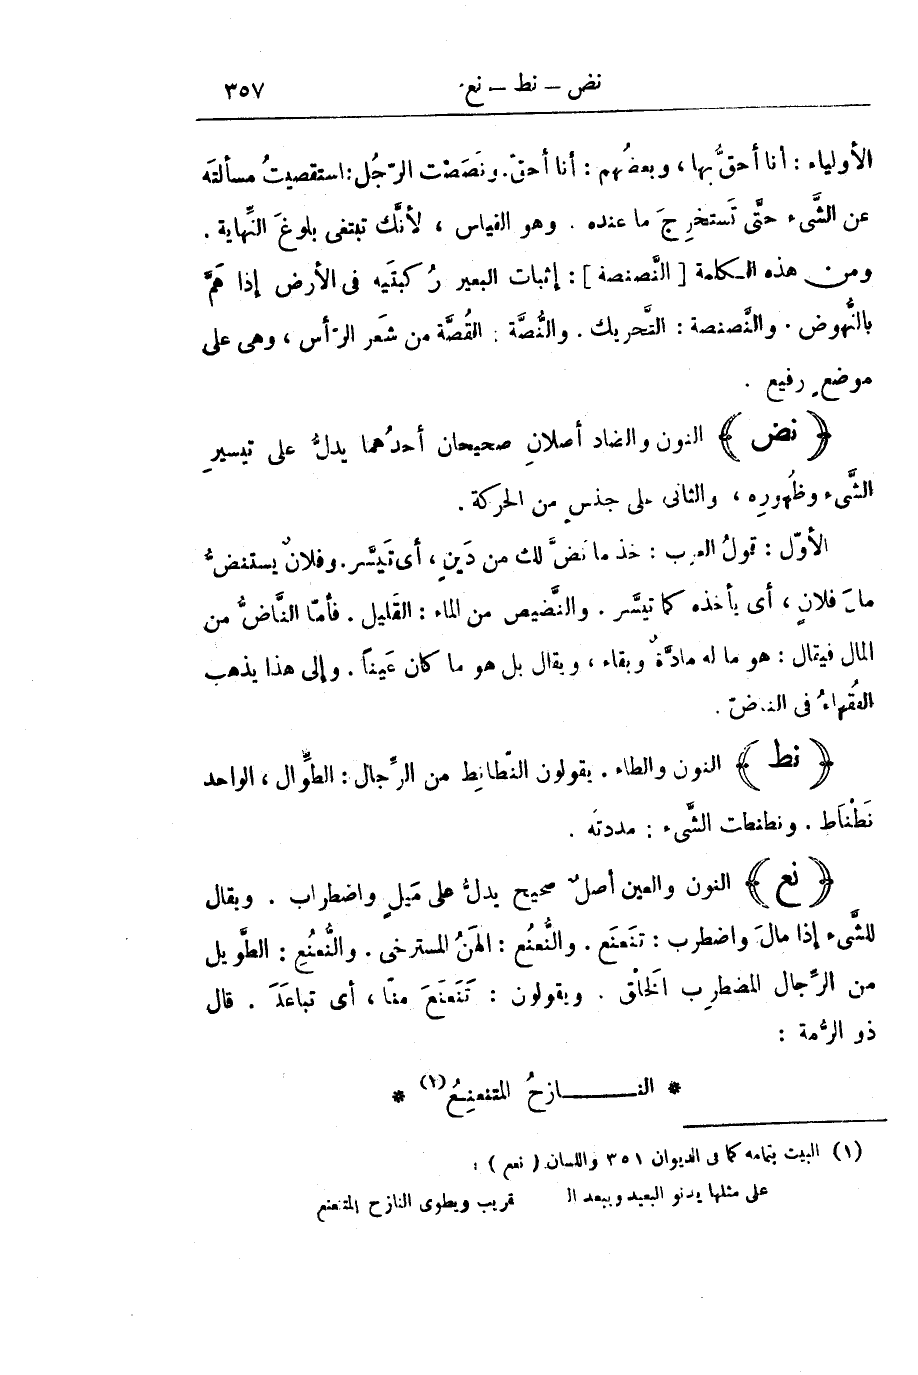 نض – نط – نع ٣٥٧
الأولياء : أنا أحقُّ بها ، وبعضُهم : أنا أحقّ . ونَصَصْت الرّجُل : استقصيتُ مسألتَه
عن الشَّىء حتَّى تَستخرِجَ ما عنده . وهو القياس ، لأنَّك تبتغى بلوغَ النِّهاية .
ومن هذه الكلمة [ النَّصنصة ] : إثبات البعير رُكبتَيه فى الأرض إذا هَمَّ
بالنُّهوض . والنَّصنصة : التَّحريك . والنُّصَّة : القُصَّة من شَعر الرّأس ، وهى على
موضعٍ رفيع .
﴿ نض ﴾ النون والضاد أصلانِ صحيحان أحدُهما يدلُّ على تيسيرِ
الشَّىء وظُهورِه ، والثانى على جنسٍ من الحركة .
الأوّل : قولُ العرب : خذ ما نَضَّ لك من دَينٍ ، أى تَيسَّر . وفلانٌ يستنضُّ
مالَ فلانٍ ، أى يأخذه كما تيسَّر . والنَّضيض من الماء : القَليل . فأمّا النَّاضُّ من
المال فيقال : هو ما له مادَّةٌ وبقاء ، ويقال بل هو ما كان عَيناً . وإلى هذا يذهب
الفُقهاءُ فى الناضّ .
﴿ نط ﴾ النون والطاء . يقولون النَّطانِط من الرِّجال : الطِّوال ، الواحد
نَطْنَاط . ونطنطت الشَّىء : مددتَه .
﴿ نع ﴾ النون والعين أصلٌ صحيح يدلُّ على مَيلٍ واضطراب . ويقال
للشَّىء إذا مالَ واضطرب : تنَعنَع . والنُّعنُع : الهَنُ المسترخى . والنُّعنُع : الطَّويل
من الرِّجال المضطرِب الخَلْق . ويقولون : تَنَعنَعَ منّا ، أى تباعَدَ . قال
ذو الرُّمة :
* النـــــازحُ المتنعنِعُ (١) *
(١) البيت بتمامه كما فى الديوان ٣٥١ واللسان ( نعع ) :
على مثلها يدنو البعيد ويبعد الـ قريب ويطوى النازح المتنعنع